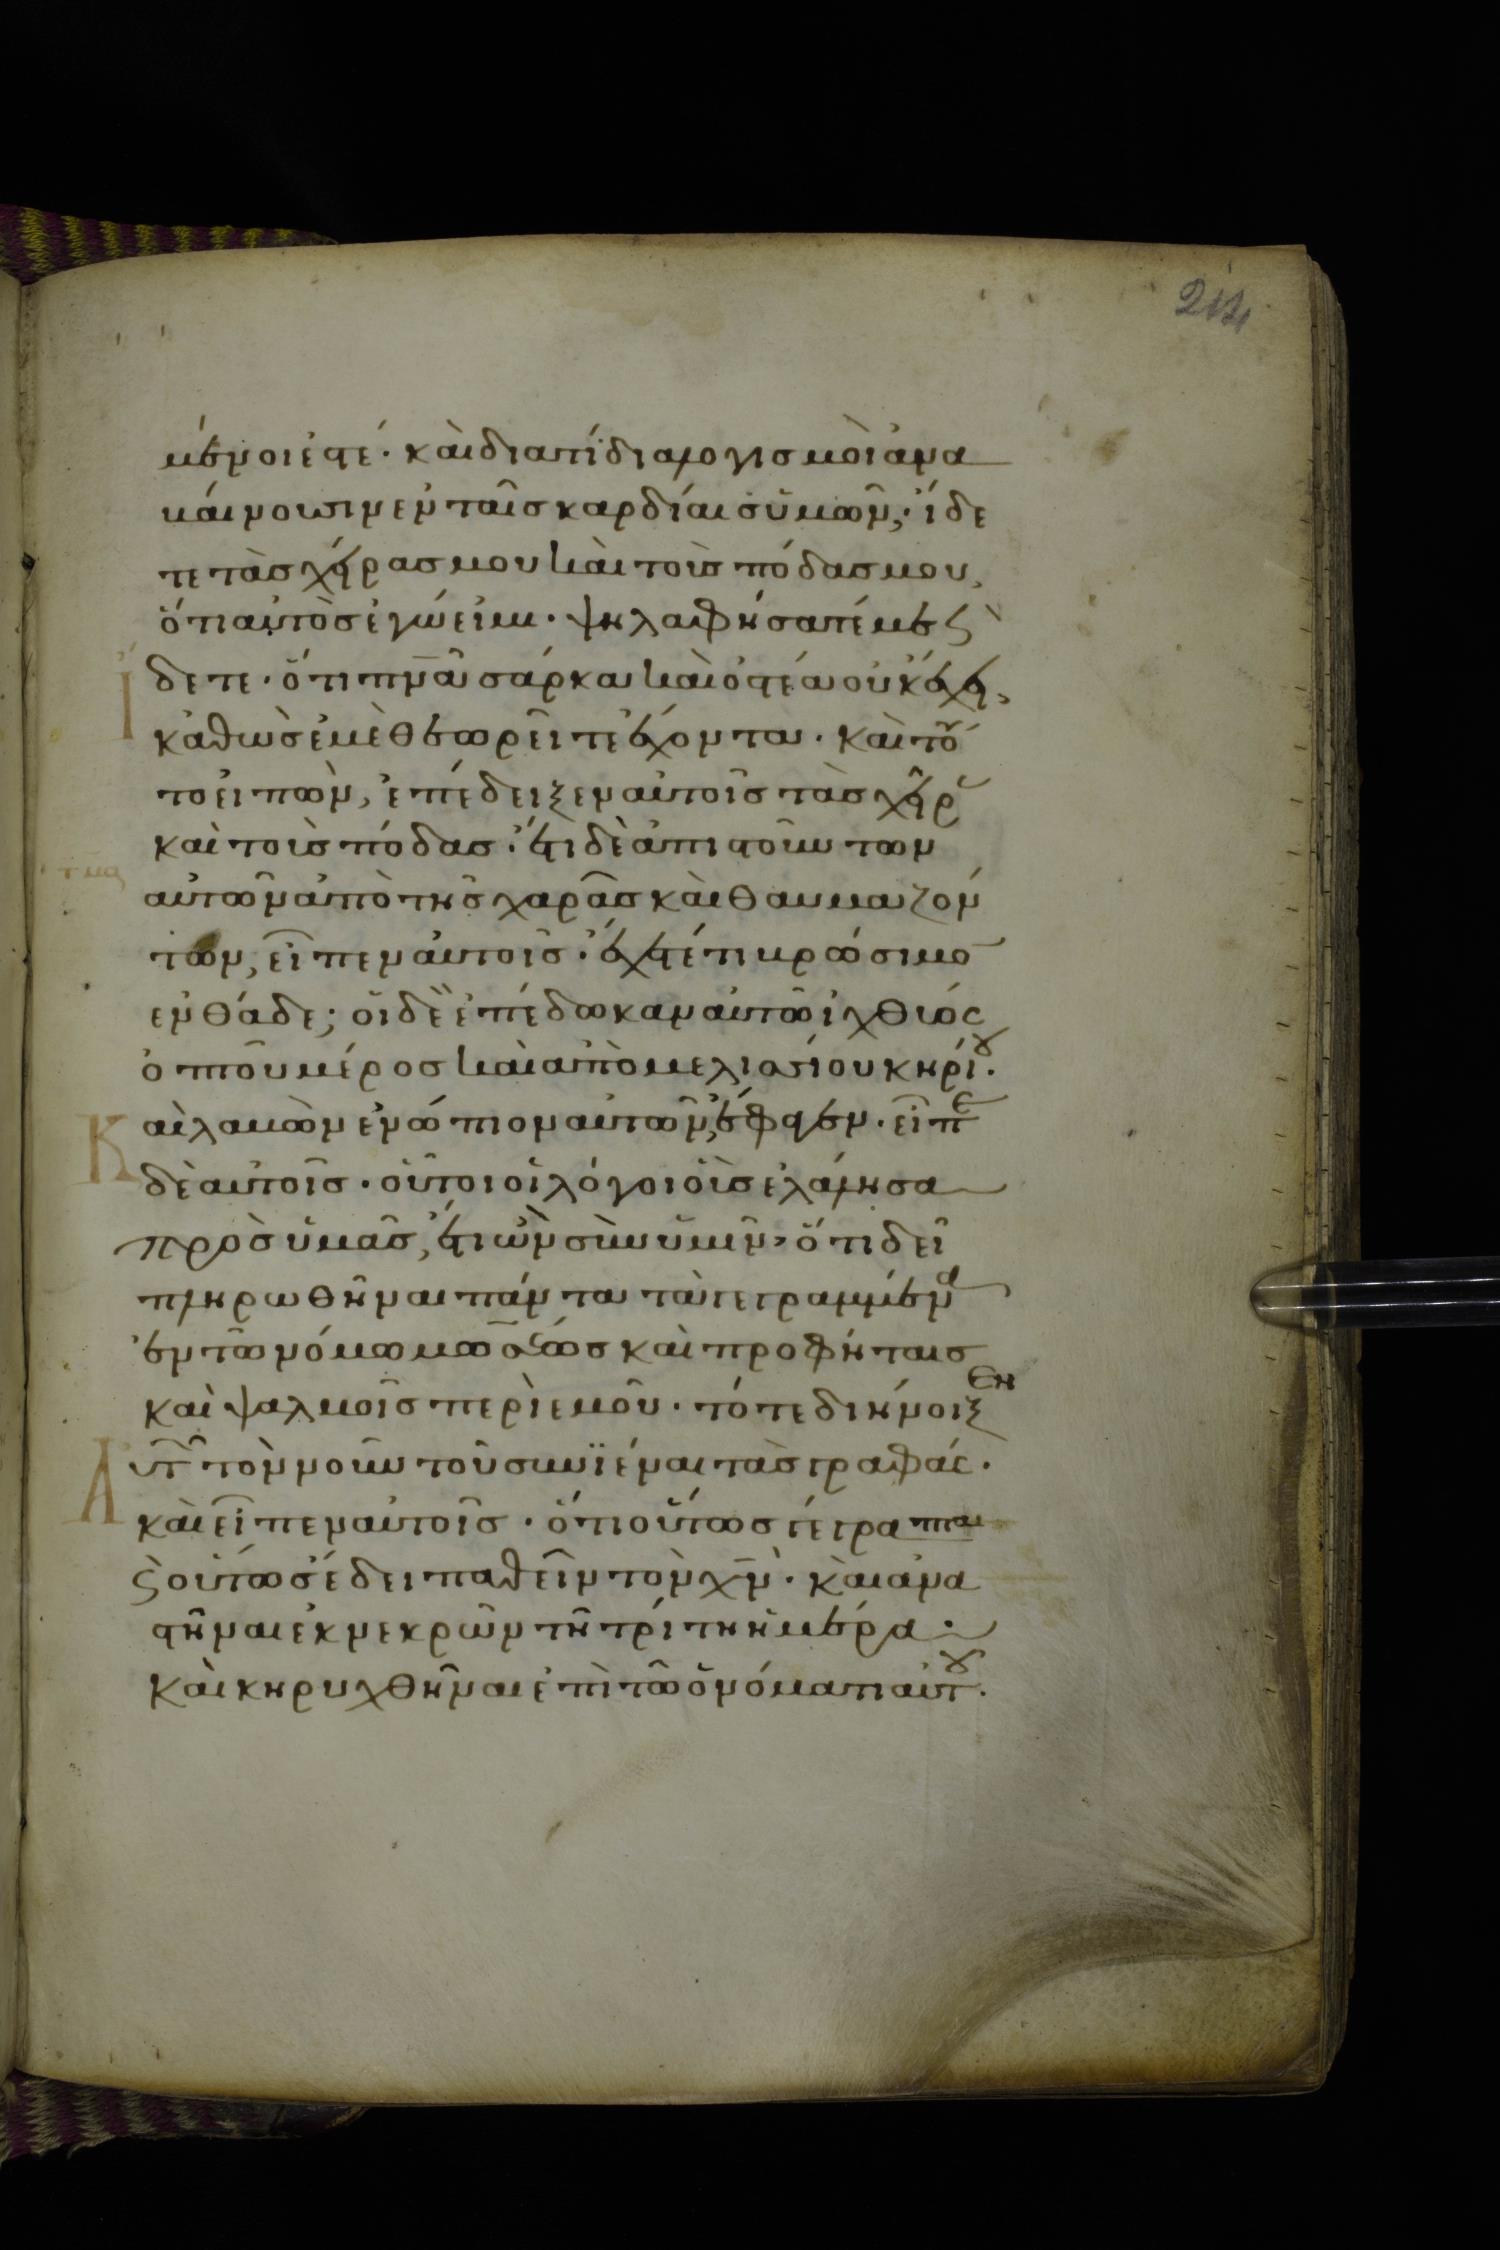 214
μένοι ἐστέ· καὶ διατί διαλογισμοὶ ἀνα
βαίνουσιν ἐν ταῖς καρδίαις ὑμῶν; ἴδε
τε τὰς χεῖρας μου καὶ τοὺς πόδας μου,
ὅτι αὐτὸς ἐγώ εἰμι· ψηλαφήσατέ με ϛ̀
ἴδετε· ὅτι πν̅α σάρκα καὶ ὀστέα οὐκ ἔχει,
καθὼς ἐμὲ θεωρεῖτε ἔχοντα· καὶ τοῦ
το εἰπὼν, ἐπέδειξεν αὐτοῖς τὰς χεῖρ
καὶ τοὺς πόδας· ἔτι δὲ ἀπιστούντων
αὐτῶν ἀπὸ τῆς χαρᾶς καὶ θαυμαζόν
των, εἶπεν αὐτοῖς· ἔχετέ τι βρώσιμο̅
ἐνθάδε; οἱ δὲ ἐπέδωκαν αὐτῶ ἰχθύος
ὀπτοῦ μέρος καὶ ἀπὸ μελισσίου κηρίου.
Καὶ λαβὼν ἐνώπιον αὐτῶν, ἔφαγεν· εἶπε
δὲ αὐτοῖς· οὗτοι οἱ λόγοι οὓς ἐλάλησα
πρὸς ὑμᾶς, ἔτι ὢν σὺν ὑμῖν, ὅτι δεῖ
πληρωθῆναι πάντα τὰ γεγραμμένα
ἐν τῶ νόμω μωσέως καὶ προφήταις
καὶ ψαλμοῖς περὶ ἐμοῦ· τότε διήνοιξεν
Αὐτῶν τὸν νοῦν τοῦ συνϊέναι τὰς γραφάς·
καὶ εἶπεν αὐτοῖς· ὅτι οὕτως γέγραπται
ϛ̀ οὕτως ἔδει παθεῖν τὸν χ̅ν̅· καὶ ἀνα
στῆναι ἐκ νεκρῶν τῆ τρίτη ἡμέρα·
καὶ κηρυχθῆναι ἐπὶ τῶ ὀνόματι αὐτοῦ.